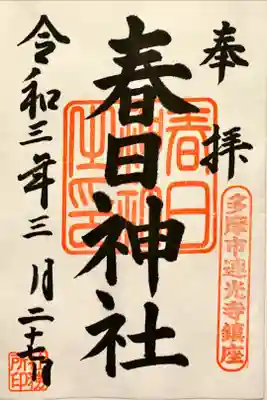 奉拝
多摩市連光寺鎮座
春日神社
令和三年三月二十七日